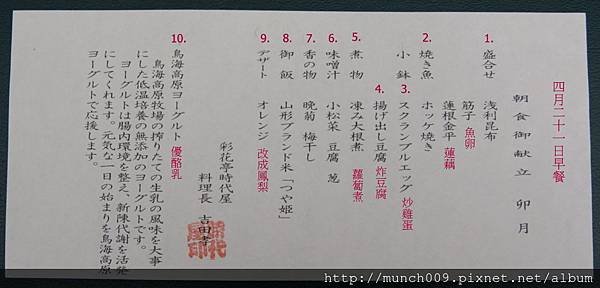 四月二十一日早餐
朝食御献立 卯月
1. 盛合せ 浅利昆布
筋子 魚卵
蓮根金平 蓮藕
2. 焼き魚 ホッケ焼き
小鉢 3. スクランブルエッグ 炒雞蛋
4. 揚げ出し豆腐 炸豆腐
5. 煮物 凍み大根煮 蘿蔔煮
6. 味噌汁 小松菜 豆腐 葱
7. 香の物 晩菊 梅干し
8. 御飯 山形ブランド米「つや姫」
9. デザート オレンジ 改成鳳梨
彩花亭時代屋
料理長 吉田孝
10. 鳥海高原ヨーグルト 優酪乳
鳥海高原牧場の搾りたての生乳の風味を大事
にした低温培養の無添加のヨーグルトです。
ヨーグルトは腸内環境を整え、新陳代謝を活発
にしてくれます。元気な一日の始まりを鳥海高原
ヨーグルトで応援します。
http://munch009.pixnet.net/album